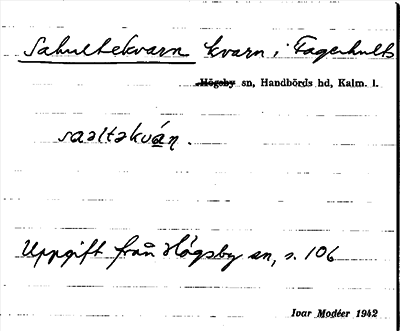 Sahultekvarn kvarn i Fagerhults
Högsby sn, Handbörds hd, Kalm. l.
saəltəkván.
Uppgift från Högsby sn, s. 106
Ivar Modéer 1942